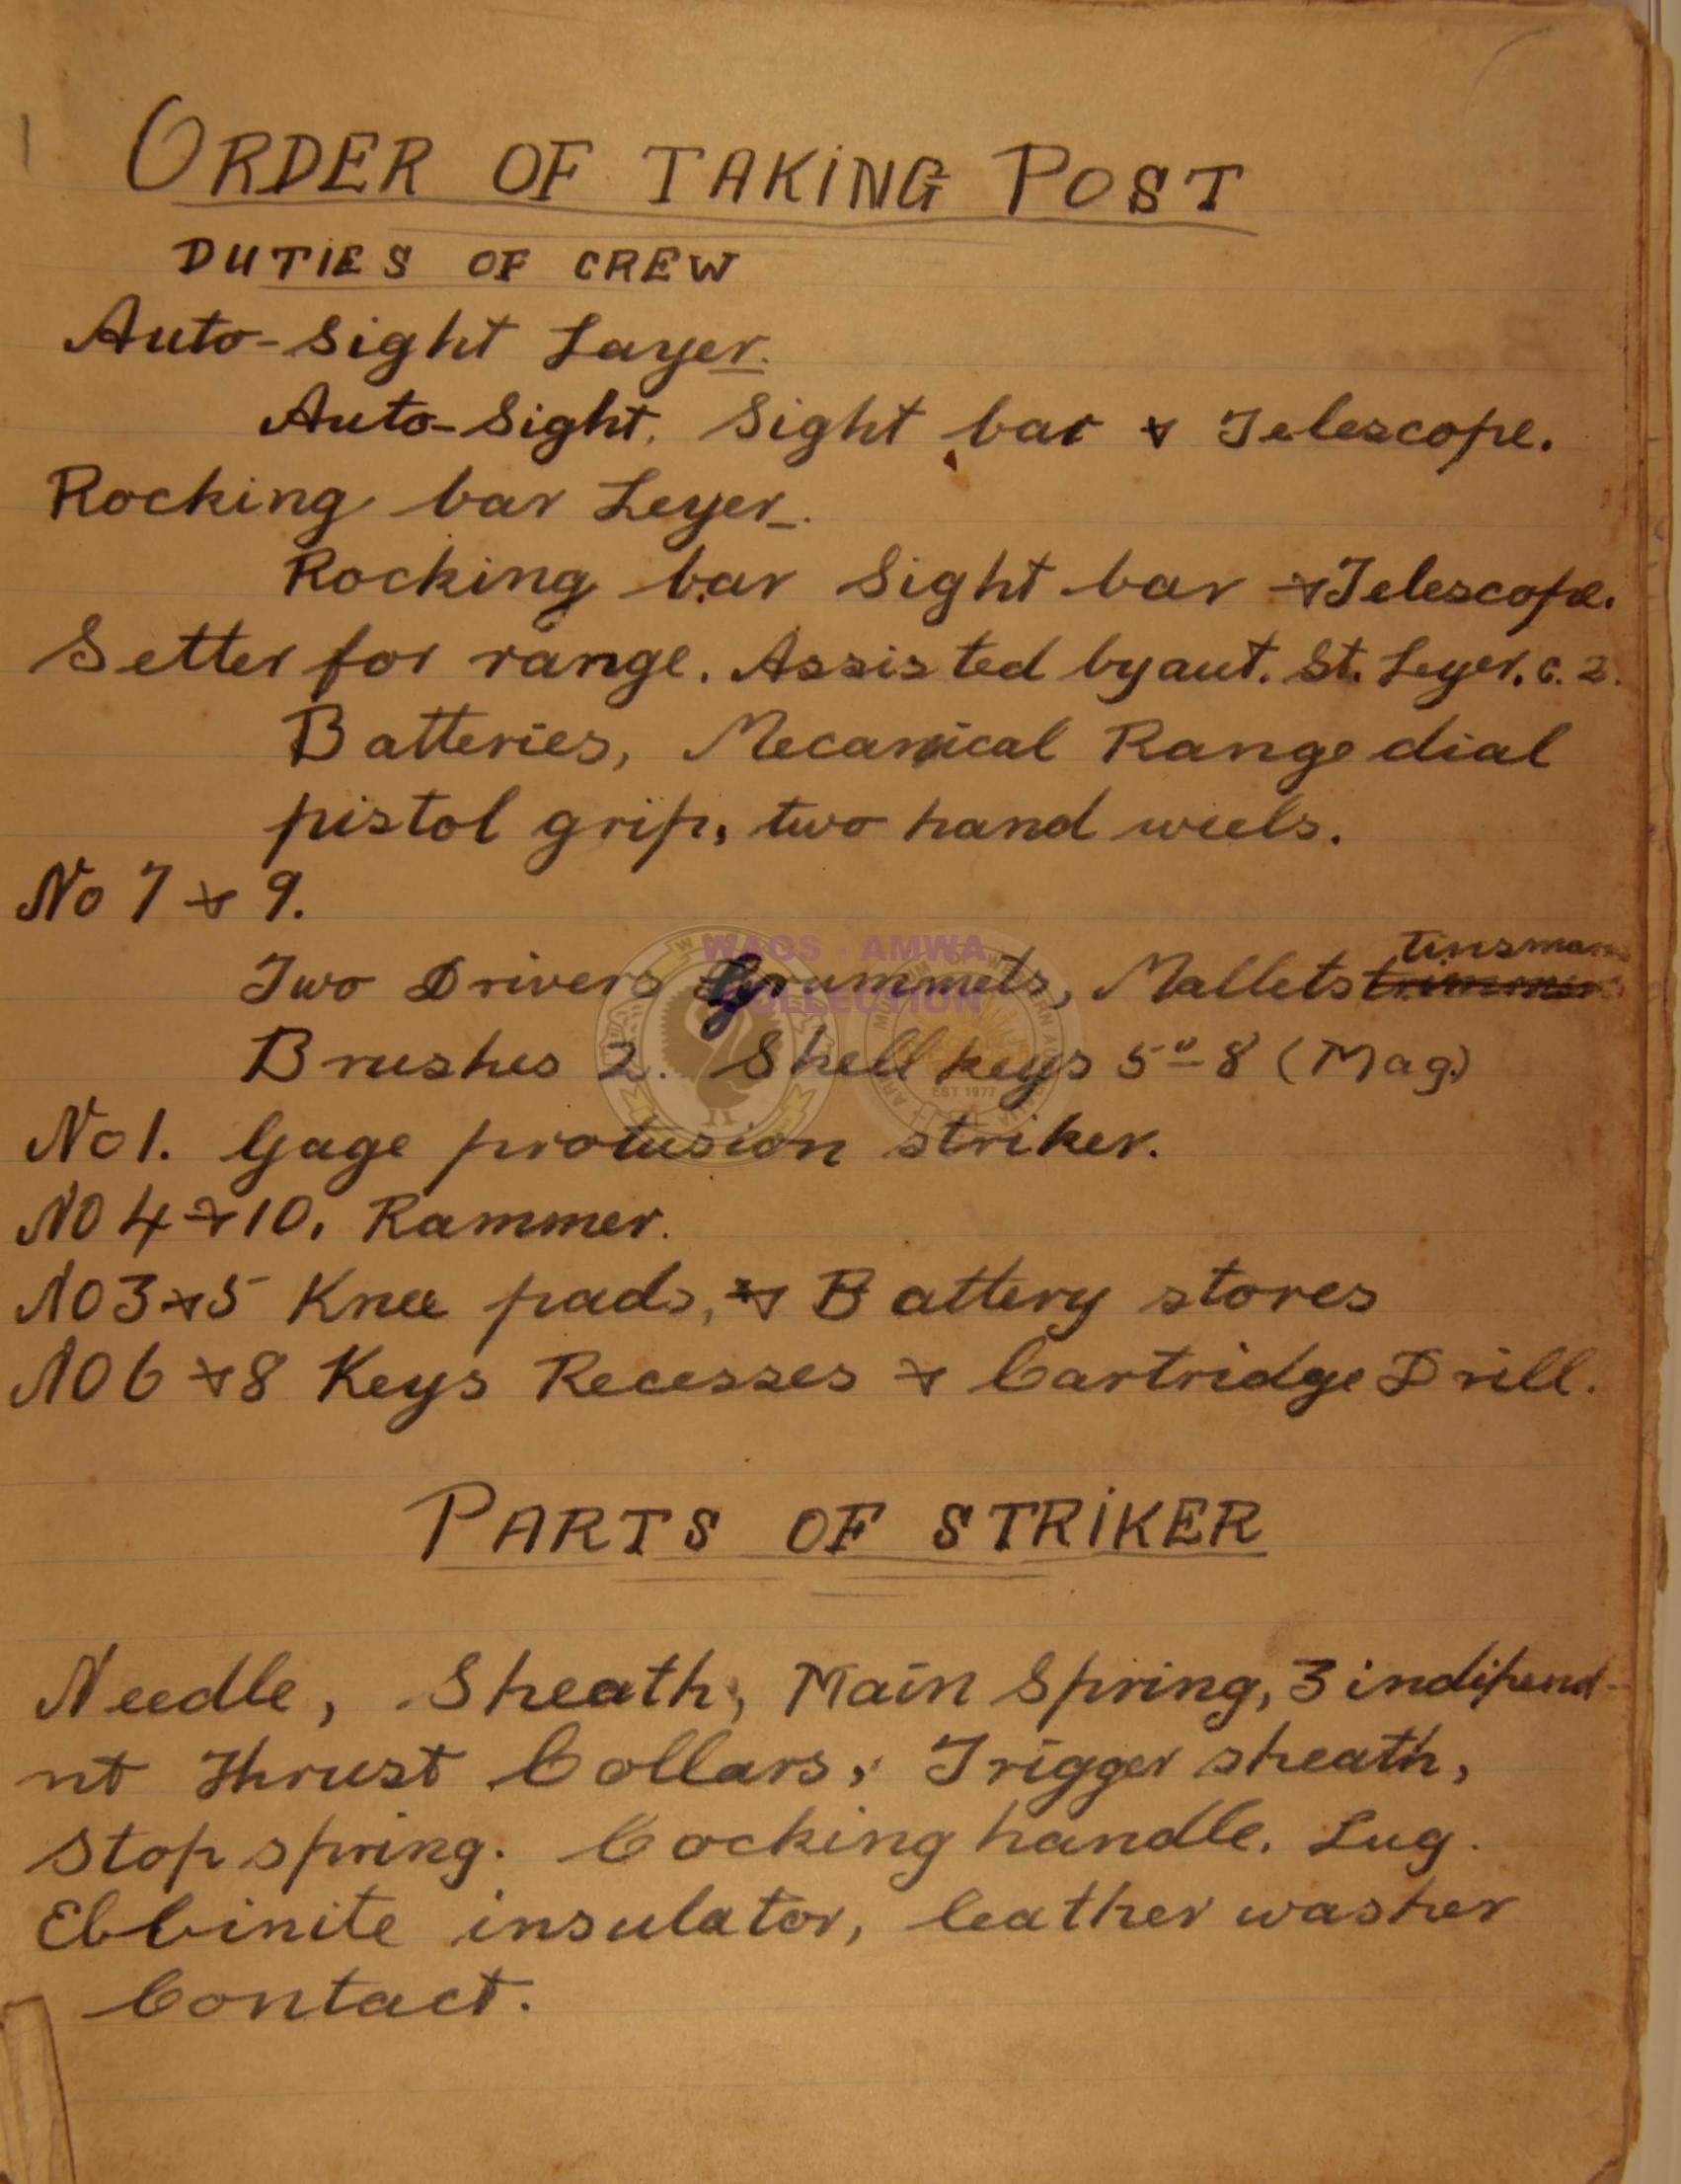 ORDER OF TAKING POST
DUTIES OF CREW
Auto-Sight Layer.
Auto-Sight, Sight bar & Telescope.
Rocking bar Leyer.
Rocking bar Sight bar & Telescope.
Setter for range. Assisted by aut. St. Leyer. c. 2.
Batteries, Mecanical Range dial
pistol grip, two hand wiels.
No 7 & 9.
tinsmans
Two Drivers Grummets, Mallets trimmer
Brushes 2. Shell keys 5"-8 (Mag)
No 1. Gage protusion striker.
NO 4 & 10. Rammer.
NO 3 & 5 Knee pads, & Battery stores
NO 6 & 8 Keys Recesses & Cartridge Drill.
PARTS OF STRIKER
Needle, Sheath, Main Spring, 3 indipend-
nt Thrust Collars, Trigger sheath,
Stop spring. Cocking handle. Lug.
Ebbinite insulator, leather washer
Contact.
WAOS - AMWA
COLLECTION
EST 1977